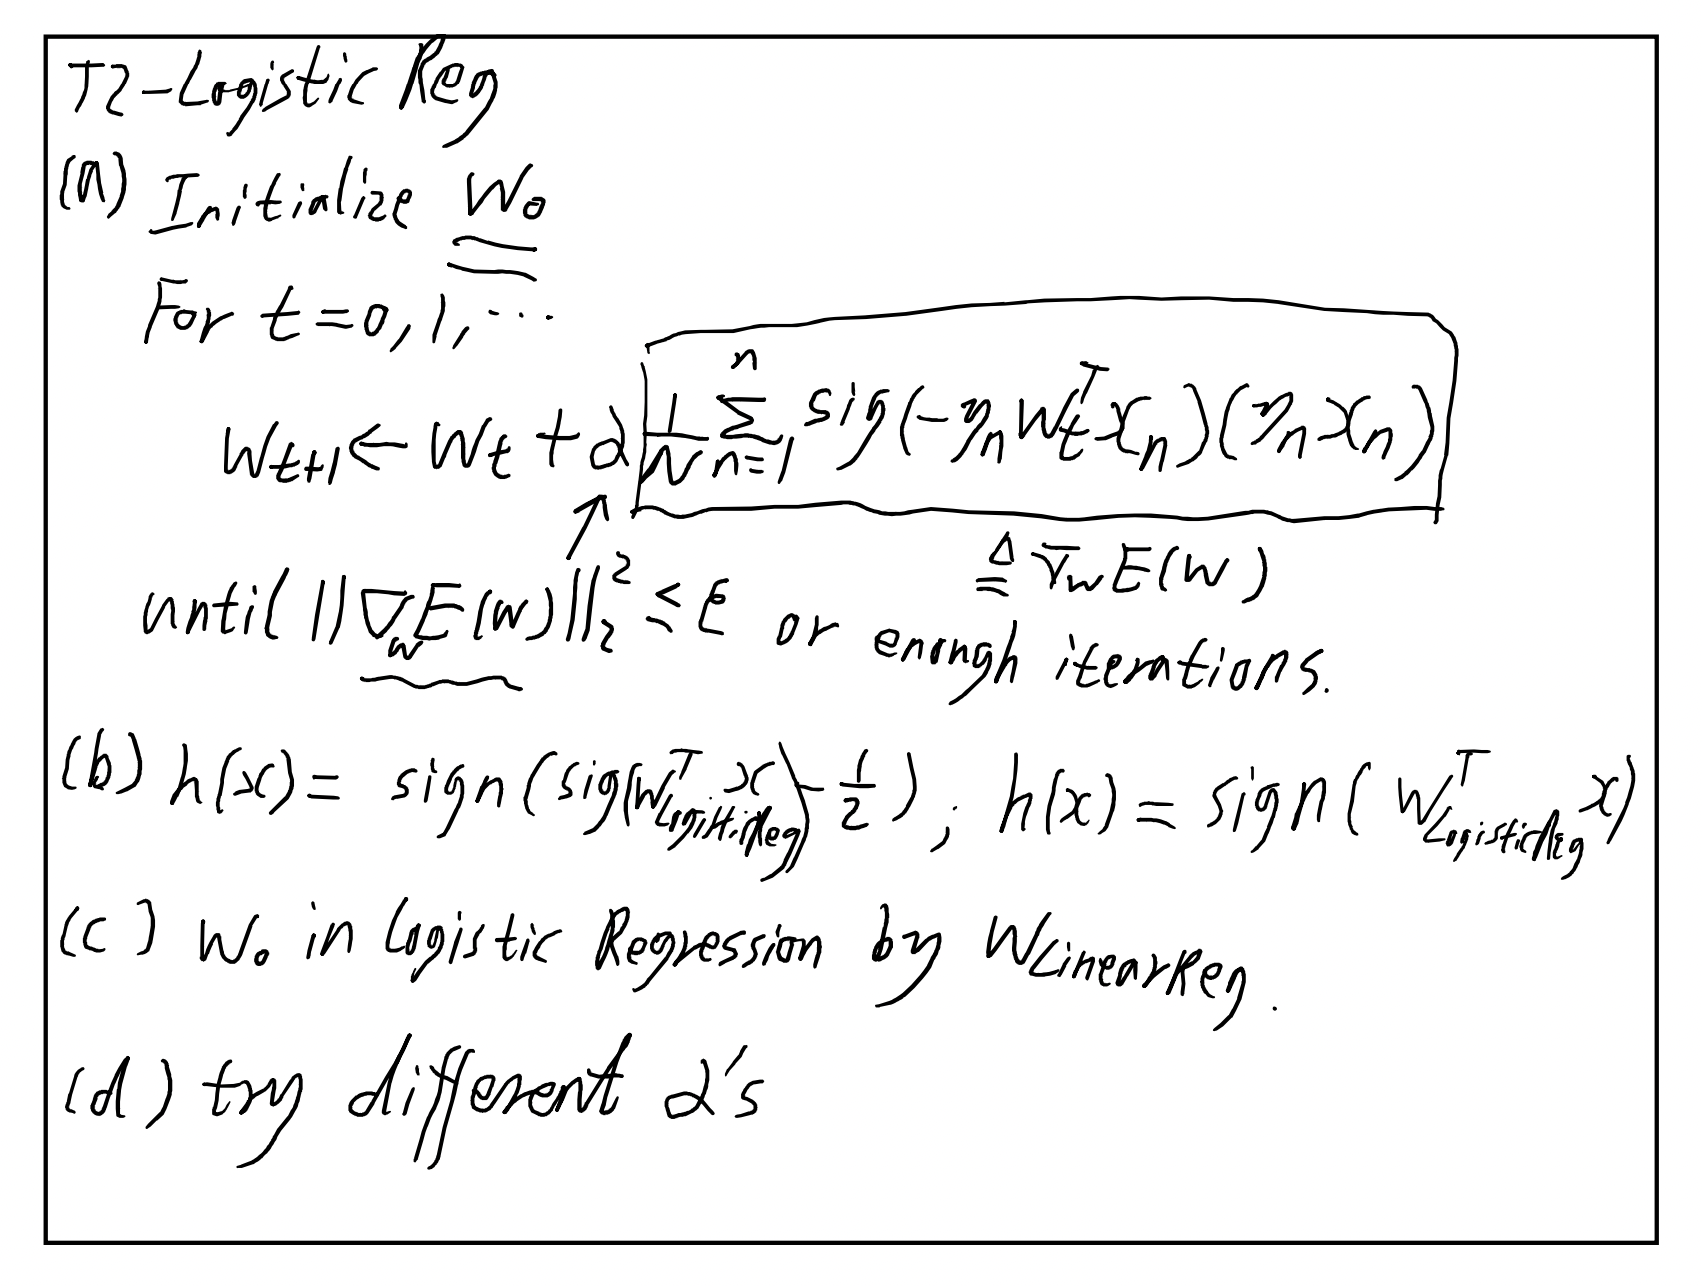 T2-Logistic Reg
(a) Initialize w₀
For t=0,1,...
w_{t+1} ← w_t + α 1/N Σ_{n=1}^{n} sig(-y_n w_t^T x_n)(y_n x_n)
≜ ∇_w E(w)
until ||∇_w E(w)||_2^2 ≤ ε or enough iterations.
(b) h(x) = sign(sig(w_{LogisticReg}^T x) - 1/2), ; h(x) = sign(w_{LogisticReg}^T x)
(c) w₀ in Logistic Regression by w_{LinearReg}.
(d) try different α's